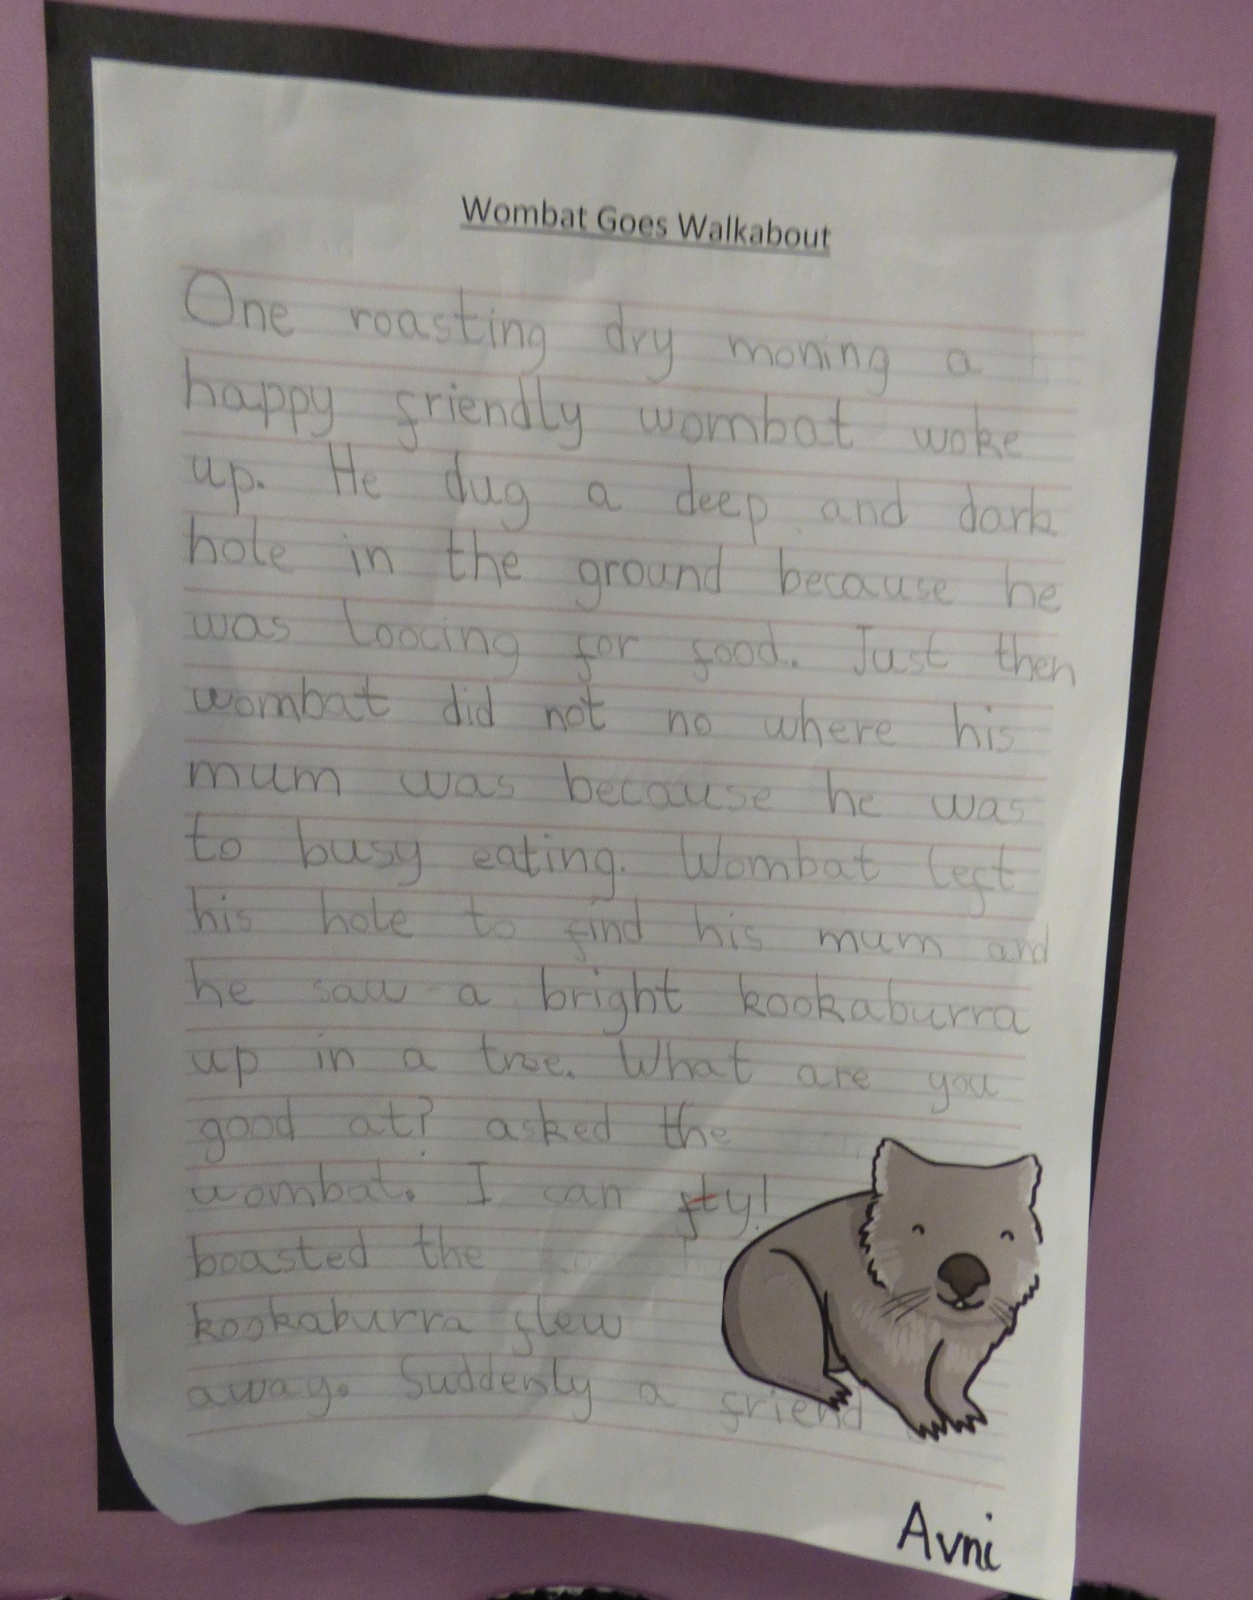 Wombat Goes Walkabout
One roasting dry moning a
happy friendly wombat woke
up. He dug a deep and dark
hole in the ground because he
was loocing for food. Just then
wombat did not no where his
mum was because he was
to busy eating. Wombat left
his hole to find his mum and
he saw a bright kookaburra
up in a tree. What are you
good at? asked the
wombat. I can fly!
boasted the
kookaburra flew
away. Suddenly a friend
Avni